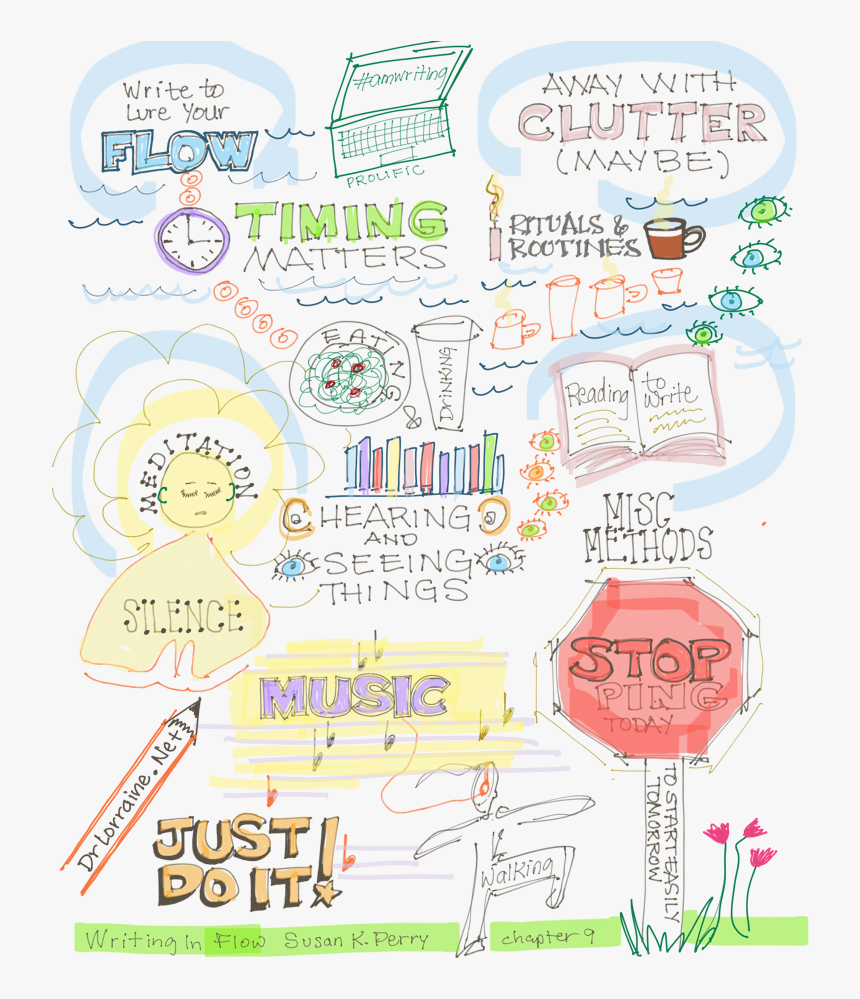 Write to
Lure Your
FLOW
#amwriting
PROLIFIC
AWAY WITH
CLUTTER
(MAYBE)
TIMING
MATTERS
RITUALS &
ROUTINES
EATING
&
DRINKING
Reading
to
Write
MEDITATION
SILENCE
HEARING
AND
SEEING
THINGS
MISC
METHODS
MUSIC
STOP
PING
TODAY
TO START EASILY
TOMORROW
Dr Lorraine.Net
JUST
DO IT!
Walking
Writing In Flow Susan K. Perry chapter 9